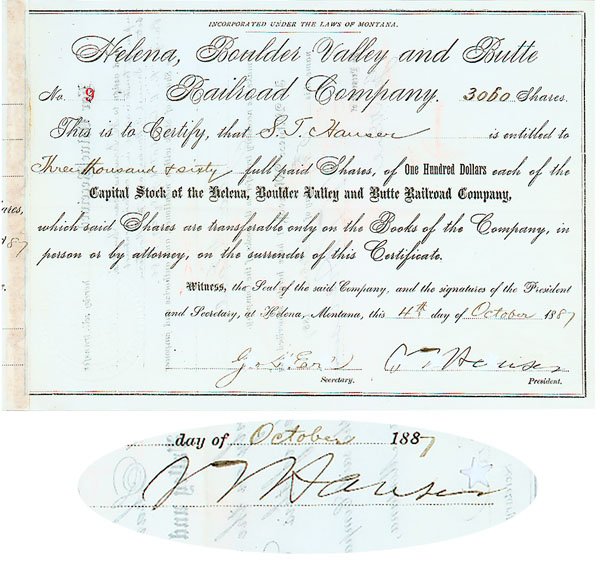 INCORPORATED UNDER THE LAWS OF MONTANA.
Helena, Boulder Valley and Butte
No. 9 Railroad Company. 3060 Shares.
This is to Certify, that S. T. Hauser is entitled to
Three thousand & sixty full paid Shares, of One Hundred Dollars each of the
Capital Stock of the Helena, Boulder Valley and Butte Railroad Company,
which said Shares are transferable only on the Books of the Company, in
person or by attorney, on the surrender of this Certificate.
Witness, the Seal of the said Company, and the signatures of the President
and Secretary, at Helena, Montana, this 4th day of October 1887
S. T. Hauser
Secretary. President.
ares,
87
day of October 1887
S T Hauser